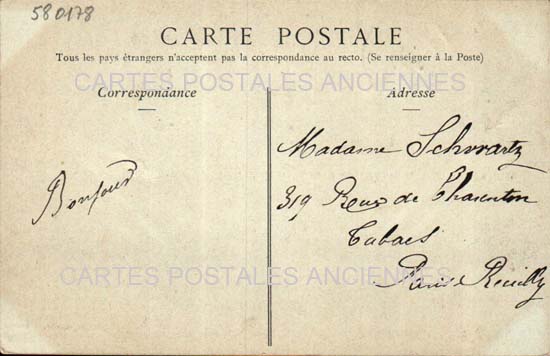 580178
CARTE POSTALE
Tous les pays étrangers n'acceptent pas la correspondance au recto. (Se renseigner à la Poste)
CARTES POSTALES ANCIENNES
Correspondance
Adresse
Bonjour
Madame Schwartz
319 Rue de Charenton
Tabacs
CARTES POSTALES ANCIENNES
Paris Reuilly